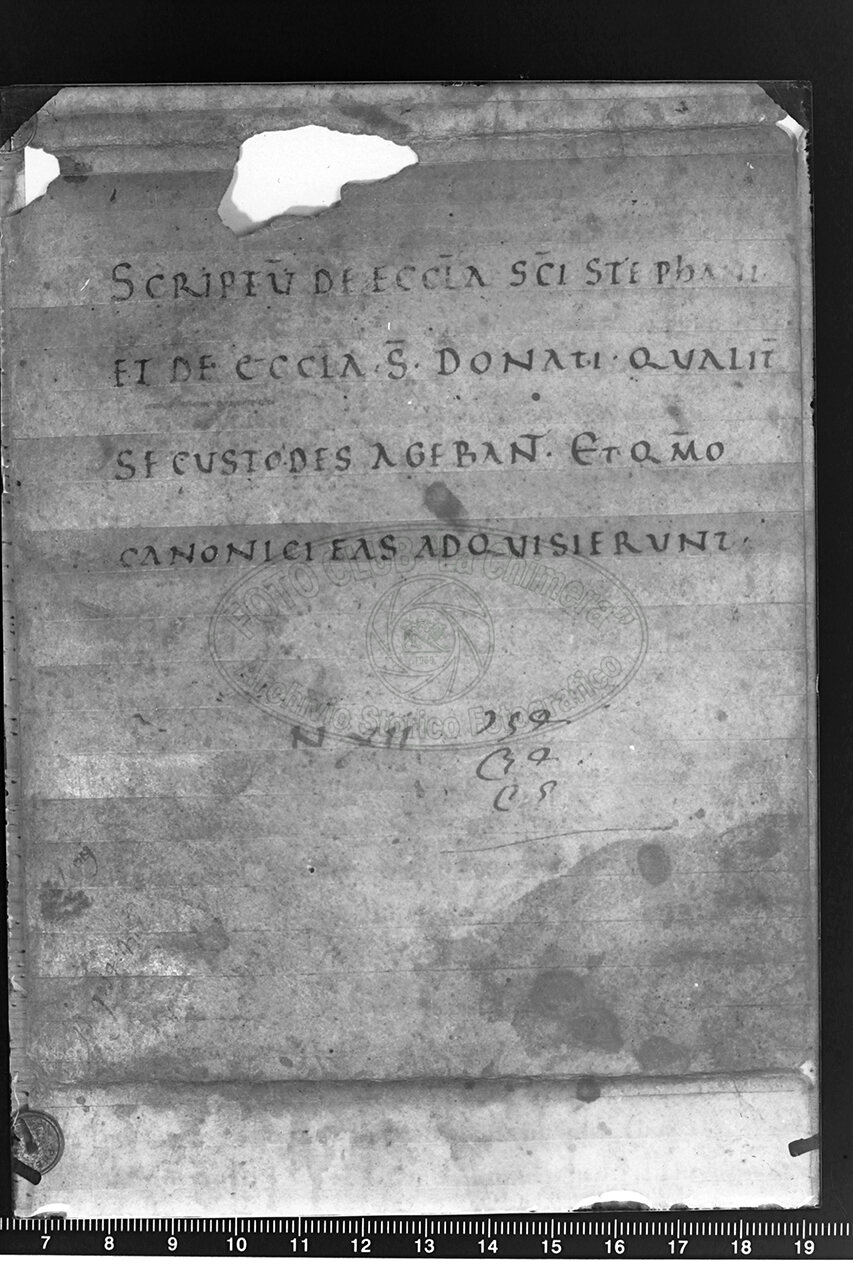 SCRIPTŪ DE ECCL̄A SC̄I STEPhANI
ET DE ECCLA · S̄ · DONATI · QVALIT̄
SE CUSTODES AGEBANT̄ · ET QM̄O
CANONICI EAS ADQVISIERVNT ·
FOTO CLUB "La Chimera"
Archivio Storico Fotografico
7 8 9 10 11 12 13 14 15 16 17 18 19